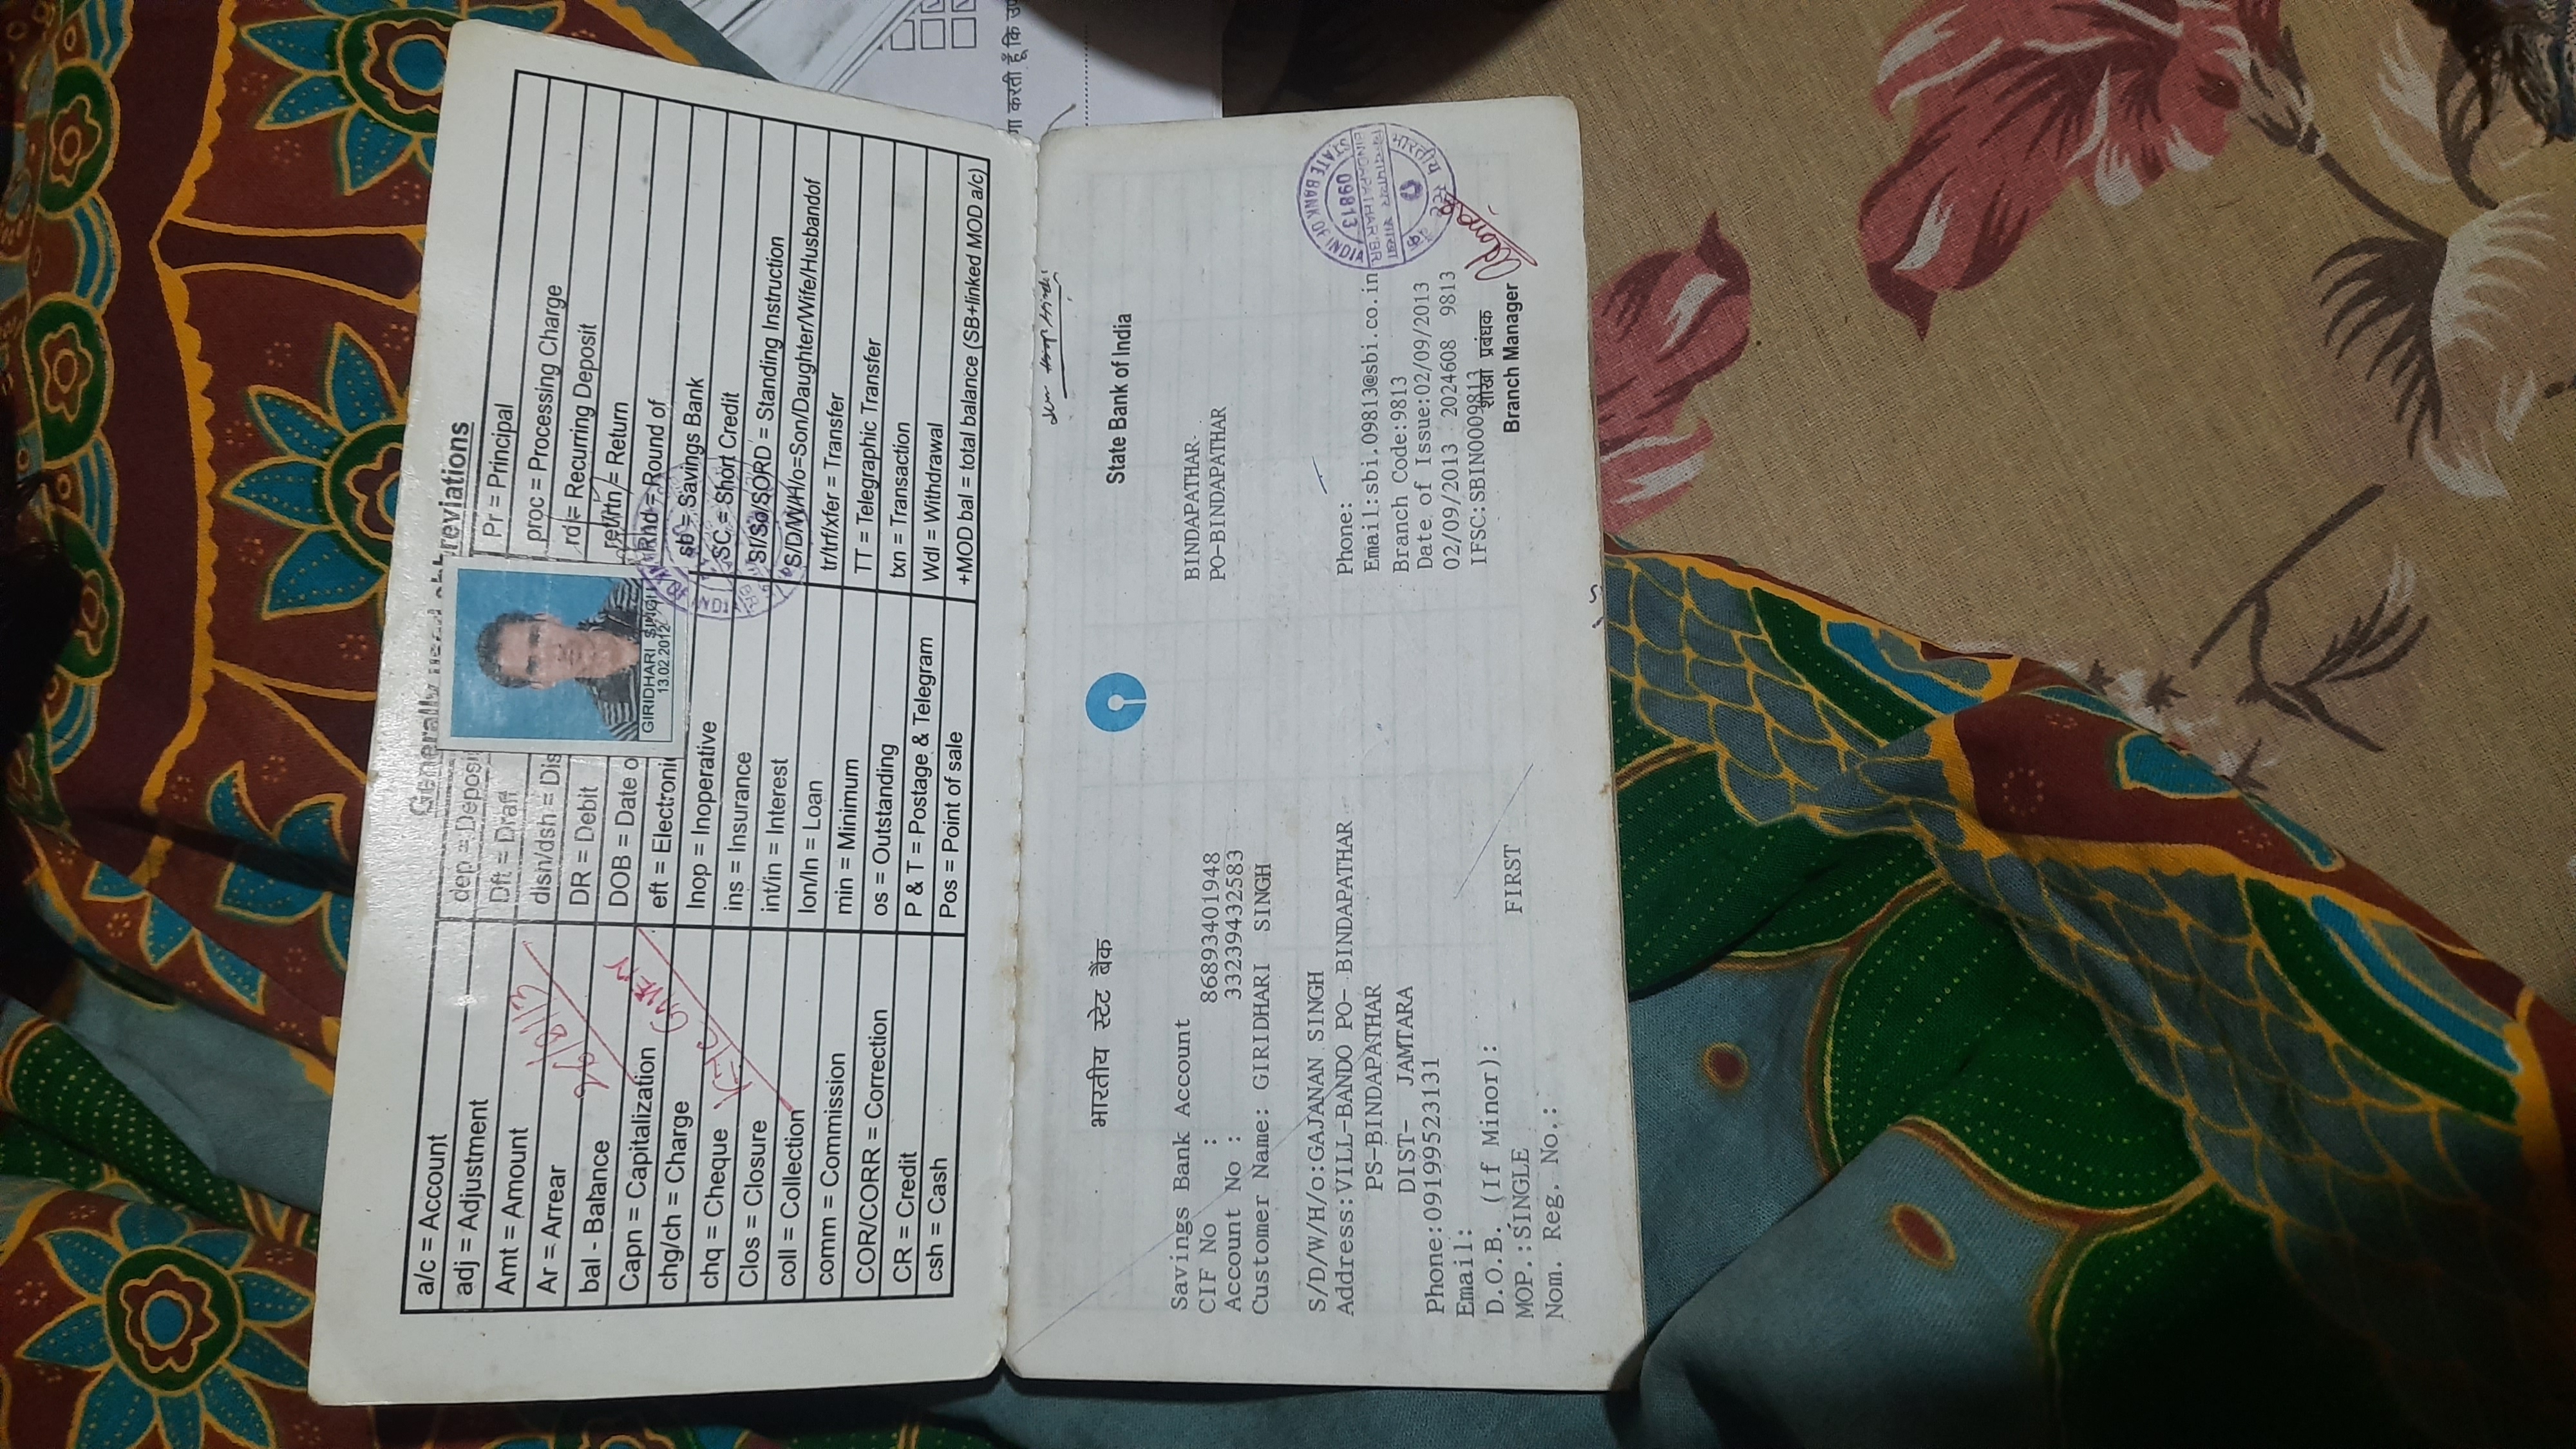 Generally used abbreviations
a/c = Account
adj = Adjustment
Amt = Amount
Ar = Arrear
bal - Balance
Capn = Capitalization
chg/ch = Charge
chq = Cheque
Clos = Closure
coll = Collection
comm = Commission
COR/CORR = Correction
CR = Credit
csh = Cash
dep = Deposi
Dft = Draft
dish/dsh = Dis
DR = Debit
DOB = Date o
eft = Electroni
Inop = Inoperative
ins = Insurance
int/in = Interest
lon/ln = Loan
min = Minimum
os = Outstanding
P & T = Postage & Telegram
Pos = Point of sale
Pr = Principal
proc = Processing Charge
rd = Recurring Deposit
ret/rtn = Return
Rnd = Round of
sb = Savings Bank
SC = Short Credit
SI/So/SORD = Standing Instruction
S/D/W/H/o=Son/Daughter/Wife/Husbandof
tr/trf/xfer = Transfer
TT = Telegraphic Transfer
txn = Transaction
Wdl = Withdrawal
+MOD bal = total balance (SB+linked MOD a/c)
GIRIDHARI SINGH
13.02.2012
भारतीय स्टेट बैंक
State Bank of India
BINDAPATHAR
PO-BINDAPATHAR
Savings Bank Account
CIF No : 86893401948
Account No : 33239432583
Customer Name: GIRIDHARI SINGH
S/D/W/H/o:GAJANAN SINGH
Address:VILL-BANDO PO- BINDAPATHAR
PS-BINDAPATHAR
DIST- JAMTARA
Phone:09199523131
Email:
D.O.B. (If Minor):
MOP.:SINGLE FIRST
Nom. Reg. No.:
Phone:
Email:sbi.09813@sbi.co.in
Branch Code:9813
Date of Issue:02/09/2013
02/09/2013 2024608 9813
IFSC:SBIN0009813
शाखा प्रबंधक
Branch Manager
भारतीय स्टेट बैंक
BINDAPATHAR BR
09813
STATE BANK OF INDIA